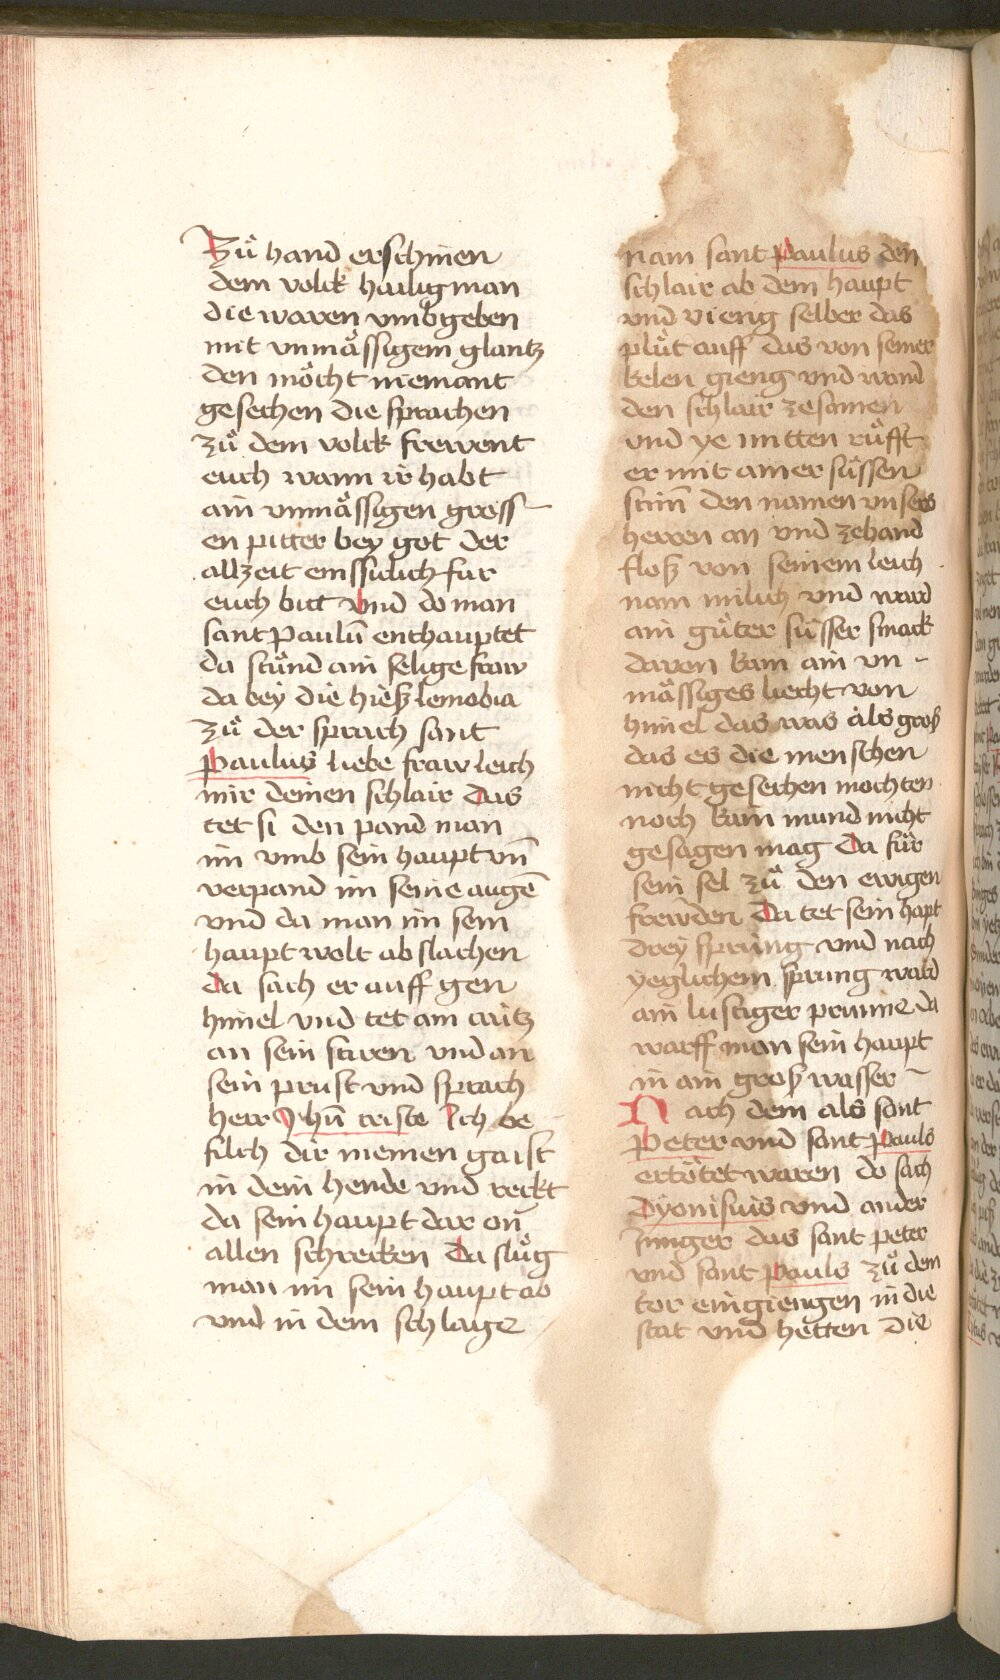 Zů hand erschinen
dem volck hailig man
die waren vmbgeben
mit vnmässigem glantz
den möcht niemant
gesechen die sprachen
zů dem volck frewent
euch wann ir habt
ain vnmässigen gross
en pitter bey got der
allzeit emssiclich fur
euch bitt vnd do man
sant paulū enthauptet
da stůnd ain selige fraw
da bey die hieß lemobia
zů der sprach sant
Paulus liebe fraw leich
mir deinen schlair Das
tet si den pand man
im vmb sein haupt vn̄
verpand im seine augē
vnd da man im sein
haupt wolt abslachen
da sach er auff gen
himel vnd tet ain crütz
an sein stiren vnd an
sein prust vnd sprach
herr Jhū criste Ich be
filch dir meinen gaist
in dein hende vnd reckt
da sein haupt dar on
allen schrecken Da slůg
man im sein haupt ab
vnd in dem schlage
nam sant Paulus den
schlair ab dem haupt
vnd vieng selber das
plůt auff das von seiner
kelen gieng vnd wand
den schlair zesamen
vnd ye mitten růfft
er mit ainer süssen
stim̄ den namen vnsers
herren an vnd zehand
floß von seinem leich
nam milich vnd ward
ain gůter süsser smack
dauon kam ain vn
mässiges liecht von
himel das was als groß
das es die menschen
nicht gesechen mochten
noch kain mund nicht
gesagen mag Da für
sein sel zů den ewigen
frewden Da tet sein hapt
drey sprüng vnd nach
yeglichem sprung ward
ain lustiger prunne da
warff man sein haupt
in ain groß wasser
Nach dem als sant
Peter vnd sant Pauls
ertötet waren do sach
Dyonisius vnd ander
Junger das sant peter
vnd sant Pauls zů dem
tor eingiengen in die
stat vnd hetten die